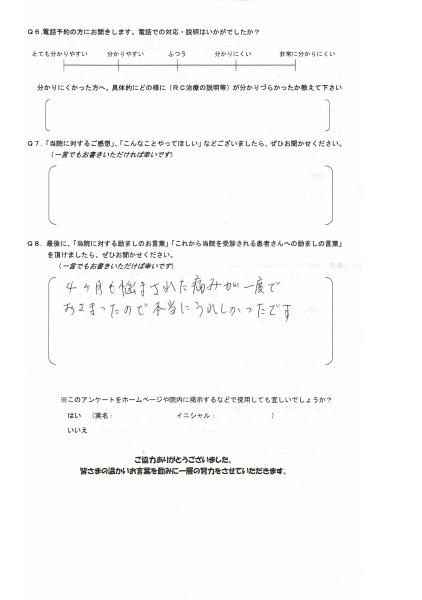 Q6.電話予約の方にお聞きします。電話での対応・説明はいかがでしたか？
とても分かりやすい 分かりやすい ふつう 分かりにくい 非常に分かりにくい
分かりにくかった方へ。具体的にどの様に（RC治療の説明等）が分かりづらかったか教えて下さい
Q7.「当院に対するご感想」、「こんなことやってほしい」などございましたら、ぜひお聞かせください。
（一言でもお書きいただければ幸いです）
Q8. 最後に、「当院に対する励ましのお言葉」「これから当院を受診される患者さんへの励ましの言葉」
を頂けましたら、ぜひお聞かせください。
（一言でもお書きいただけば幸いです）
4ヶ月も悩まされた痛みが一度で
おさまったので本当にうれしかったです
※このアンケートをホームページや院内に掲示するなどで使用しても宜しいでしょうか？
はい （実名： イニシャル： ）
いいえ
ご協力ありがとうございました。
皆さまの温かいお言葉を励みに一層の努力をさせていただきます。